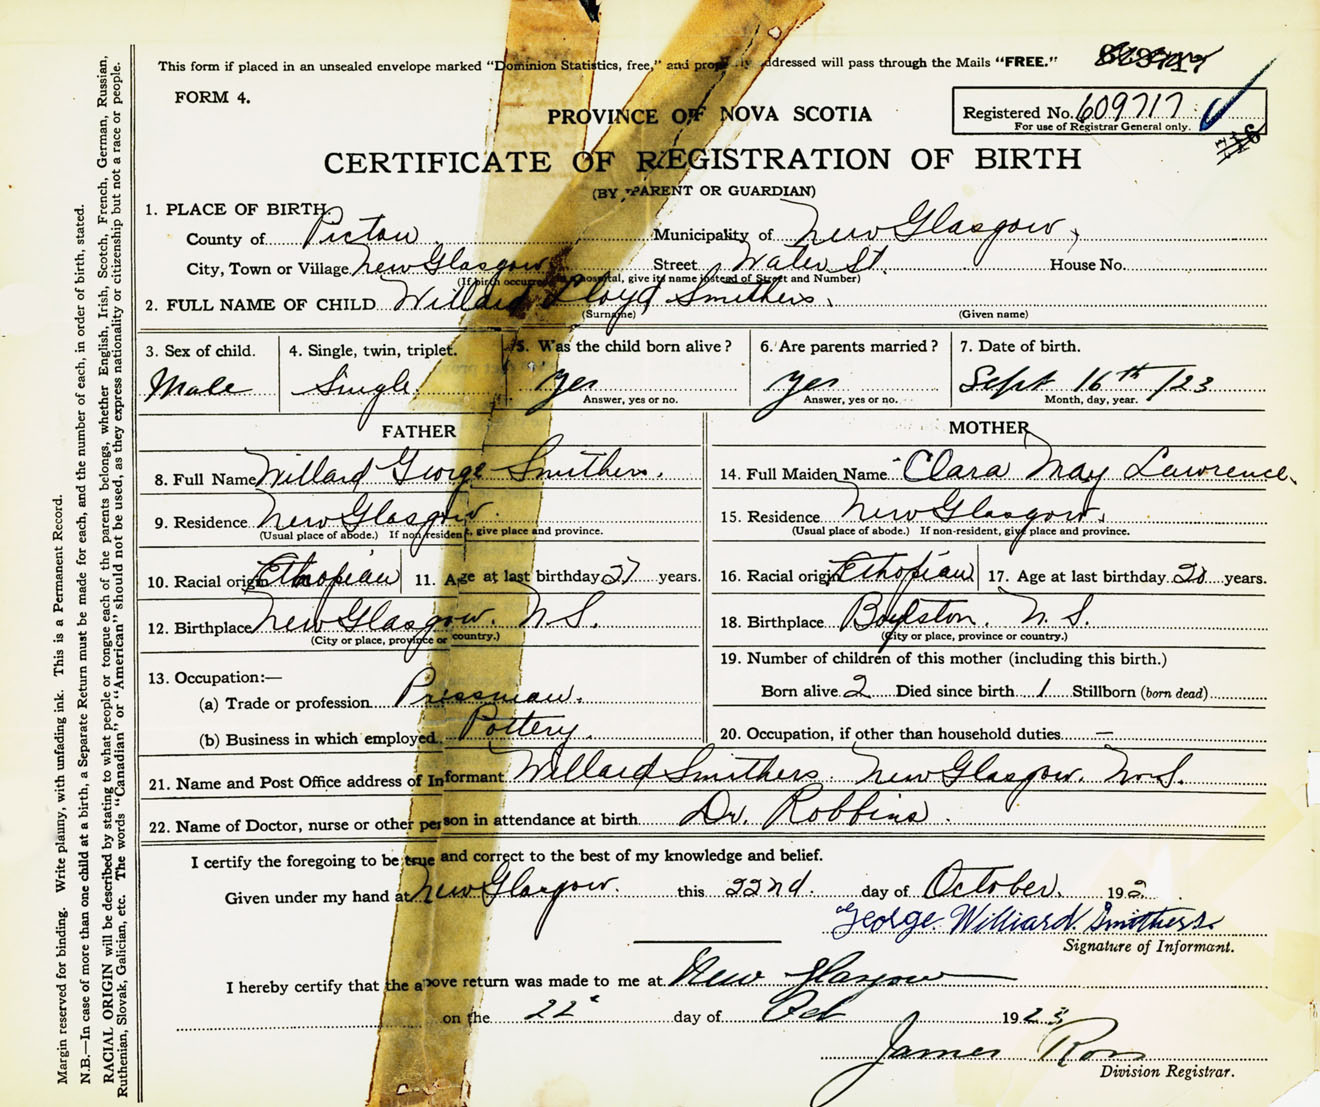 This form if placed in an unsealed envelope marked "Dominion Statistics, free," and properly addressed will pass through the Mails "FREE."
FORM 4.
PROVINCE OF NOVA SCOTIA
Registered No. 609717
For use of Registrar General only.
CERTIFICATE OF REGISTRATION OF BIRTH
(BY PARENT OR GUARDIAN)
1. PLACE OF BIRTH
County of Pictou Municipality of New Glasgow,
City, Town or Village New Glasgow Street Water St. House No.
(If birth occurred in hospital, give its name instead of Street and Number)
2. FULL NAME OF CHILD Willard Lloyd Smithers.
(Surname) (Given name)
3. Sex of child. 4. Single, twin, triplet. 5. Was the child born alive? 6. Are parents married? 7. Date of birth.
Male Single Yes Yes Sept 16th /23
Answer, yes or no. Answer, yes or no. Month, day, year.
FATHER MOTHER
8. Full Name Willard George Smithers. 14. Full Maiden Name Clara May Lawrence.
9. Residence New Glasgow. 15. Residence New Glasgow.
(Usual place of abode.) If non-resident, give place and province. (Usual place of abode.) If non-resident, give place and province.
10. Racial origin Ethiopian 11. Age at last birthday 27 years. 16. Racial origin Ethopian 17. Age at last birthday years.
12. Birthplace New Glasgow. N.S. 18. Birthplace Boylston. N.S.
(City or place, province or country.) (City or place, province or country.)
13. Occupation:— 19. Number of children of this mother (including this birth.)
(a) Trade or profession Pressman. Born alive 2 Died since birth 1 Stillborn (born dead)
(b) Business in which employed Pottery. 20. Occupation, if other than household duties —
21. Name and Post Office address of Informant Willard Smithers. New Glasgow. N.S.
22. Name of Doctor, nurse or other person in attendance at birth Dr. Robbins.
I certify the foregoing to be true and correct to the best of my knowledge and belief.
Given under my hand at New Glasgow. this 22nd. day of October. 192
George Williard Smithers
Signature of Informant.
I hereby certify that the above return was made to me at New Glasgow
on the 22 day of Oct 1923
James Ross
Division Registrar.
Margin reserved for binding. Write plainly, with unfading ink. This is a Permanent Record.
N.B.—In case of more than one child at a birth, a Separate Return must be made for each, and the number of each, in order of birth, stated.
RACIAL ORIGIN will be described by stating to what people or tongue each of the parents belongs, whether English, Irish, Scotch, French, German, Russian,
Ruthenian, Slovak, Galician, etc. The words "Canadian" or "American" should not be used, as they express nationality or citizenship but not a race or people.